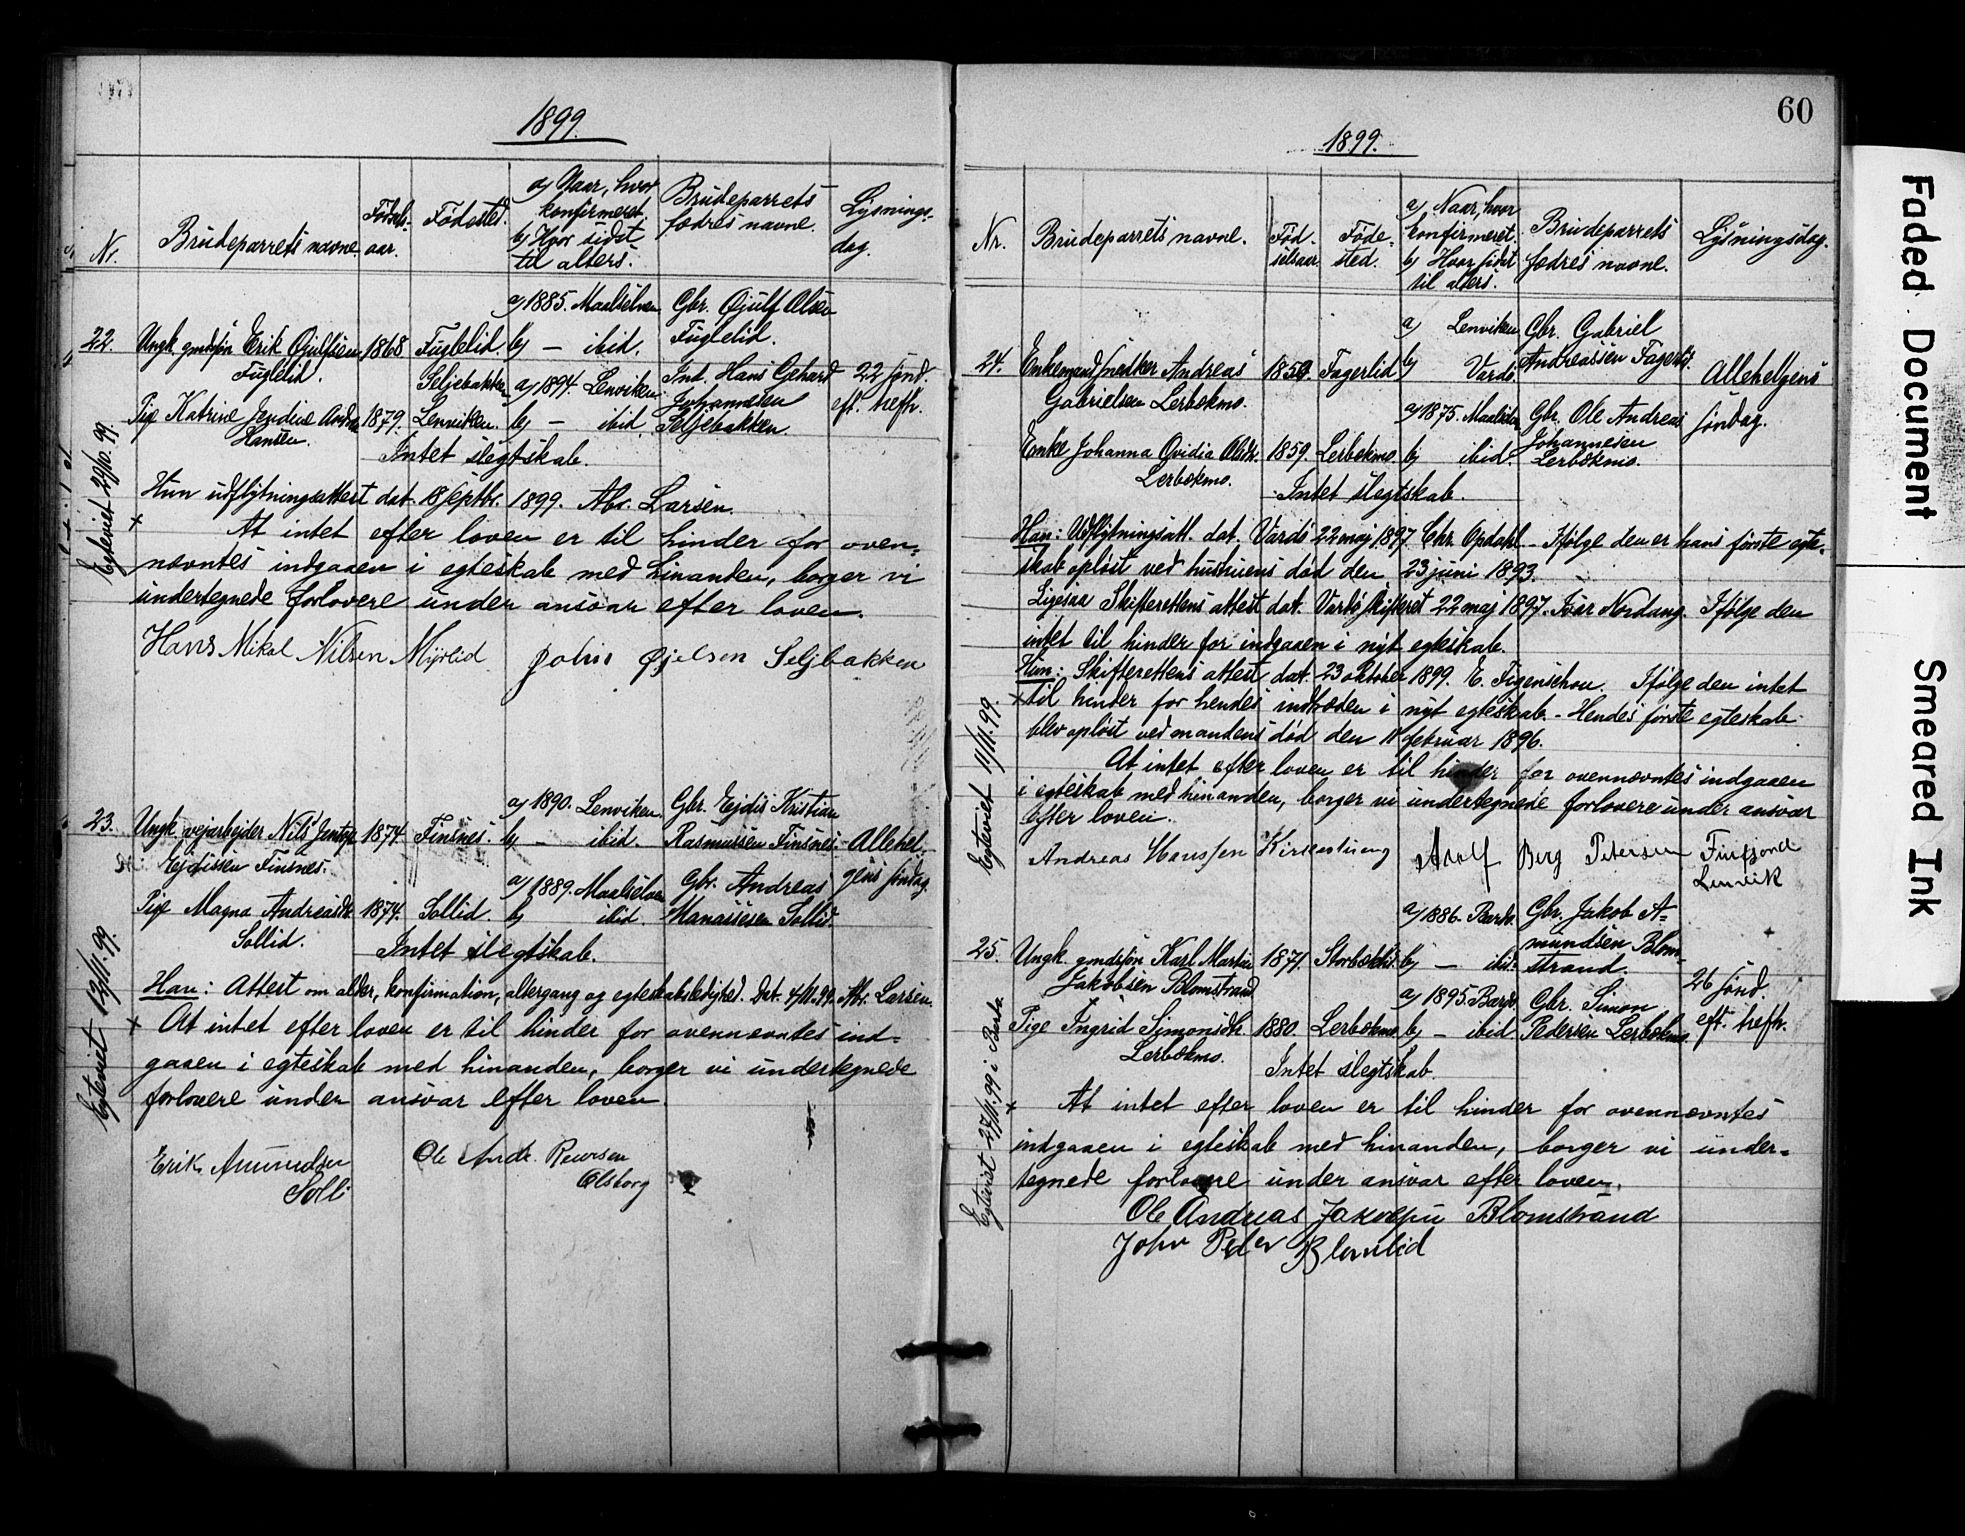 1899.
Nr.
Brudeparrets navne.
Fødsels-
aar.
Fødested.
a) Naar, hvor
konfirmeret.
b) Hvor sidst
til alters.
Brudeparrets
fædres navne.
Lysnings-
dag.
22.
Ungk. gmdsøn Erik Øjulfsen
Fuglelid.
1868
Fuglelid.
a) 1885. Maalselven
b) — ibid.
Gbr. Øjulf Olsen
Fuglelid.
22 sønd.
eft. trefh.
Pige Katrine Jendine
Hansen.
1879.
Seljebakken
Lenviken.
a) 1894. Lenviken
b) — ibid.
Ind. Hans Gehard
Johannesen
Seljebakken.
Intet slegtskab.
Hun udflytningsattest dat. 18 septbr. 1899. Abr. Larsen.
At intet efter loven er til hinder for oven-
nævntes indgaaen i egteskab med hinanden, borger vi
undertegnede forlovere under ansvar efter loven.
Hans Mikal Nilsen Myrlid
Johis Øjelsen Seljbakken
Egteviet 29/10. 99.
23.
Ungk. vejarbejder Nils Jentof
Ejdissen Finsnes.
1874.
Finsnes.
a) 1890. Lenviken.
b) — ibid.
Gbr. Ejdis Kristian
Rasmussen Finsnes.
Allehel-
gens søndag.
Pige Magna Andreasdtr.
Sollid.
1874.
Sollid.
a) 1889. Maalselven
b) ibid.
Gbr. Andreas
Manassesen Sollid.
Intet slegtskab.
Han: Attest om alder, konfirmation, altergang og egteskabsledighed. Dat. 4/11. 99. Abr. Larsen.
At intet efter loven er til hinder for ovennævntes ind-
gaaen i egteskab med hinanden, borger vi undertegnede
forlovere under ansvar efter loven.
Erik Amundsen
Solli
Ole Andr.
Olsborg
Egteviet 12/11. 99.
60
1899.
Nr.
Brudeparrets navne.
Fød-
selsaar.
Føde-
sted.
a) Naar, hvor
konfirmeret.
b) Hvor sidst
til alters.
Brudeparrets
fædres navne.
Lysningsdag.
24.
Enkemand snedker Andreas
Gabrielsen Lerbekmo.
1859.
Fagerlid
a) Lenviken
b) Vardø.
Gbr. Gabriel
Andreassen Fagerlid.
Allehelgens
søndag.
Enke Johanna Ovidia Olsdtr.
Lerbekmo.
1859.
Lerbekmo
a) 1875. Maalselven
b) ibid.
Gbr. Ole Andreas
Johannesen
Lerbekmo.
Intet slegtskab.
Han: Udflytningsatt. dat. Vardø 22 maj 1897. Chr. Opdahl. - Ifølge den er hans første egte-
skab opløst ved hustruens død den 23 juni 1893.
Ligesaa Skifterettens attest dat. Vardø skifteret 22 maj 1897. Ivar Nordang. Ifølge den
intet til hinder for indgaaen i nyt egteskab.
Hun: Skifterettens attest dat. 23 oktober 1899. E. Figenschou. Ifølge den intet
til hinder for hendes indtræden i nyt egteskab. - Hendes første egteskab
blev opløst ved mandens død den 11 februar 1896.
At intet efter loven er til hinder for ovennævntes indgaaen
i egteskab med hinanden, borger vi undertegnede forlovere under ansvar
efter loven.
Andreas Hanssen
Adolf Berg Petersen
Finfjord
Lenvik
Egteviet 11/11. 99.
25.
Ungk. gmdsøn Karl Martin
Jakobsen Blomstrand
1871.
a) 1886. Bardo
b) — ibid.
Gbr. Jakob A-
mundsen Blom-
strand.
26 sønd.
eft. trefh.
Pige Ingrid Simonsdtr.
Lerbekmo.
1880.
Lerbekmo
a) 1895. Bardo
b) — ibid
Gbr. Simon
Pedersen Lerbekmo.
Intet slegtskab.
At intet efter loven er til hinder for ovennævntes
indgaaen i egteskab med hinanden, borger vi under-
tegnede forlovere under ansvar efter loven.
Ole Andreas Jakobsen Blomstrand
John Peder Blomlid
Egteviet 27/11. 99 i Bardo.
Faded Document
Smeared Ink